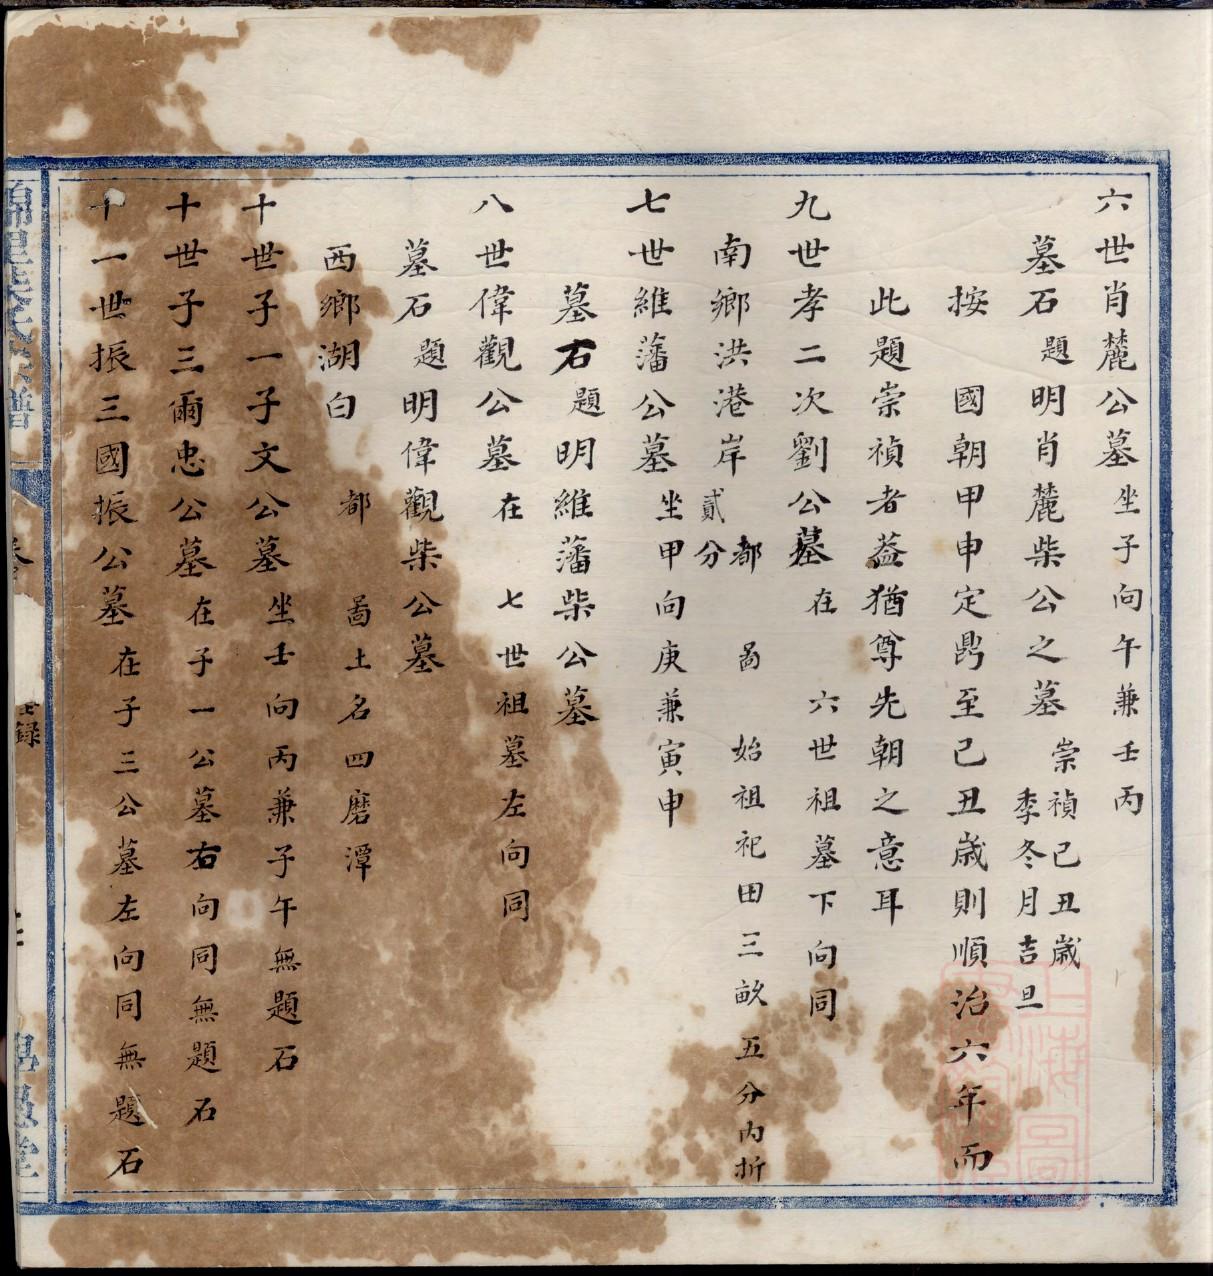 六世肖麓公墓坐子向午兼壬丙
墓石題明肖麓柴公之墓崇禎己丑歲季冬月吉旦
按 國朝甲申定鼎至己丑歲則順治六年而
此題崇禎者葢猶尊先朝之意耳
九世孝二次劉公墓在 六世祖墓下向同
南鄉洪港岸 都 啚 始祖祀田三畝五分內折
貳分
七世維藩公墓坐甲向庚兼寅申
墓石題明維藩柴公墓
八世偉觀公墓在 七世祖墓左向同
墓石題明偉觀柴公墓
西鄉湖白 都 啚土名四磨潭
十世子一子文公墓坐壬向丙兼子午無題石
十世子三爾忠公墓在子一公墓右向同無題石
十一世振三國振公墓在子三公墓左向同無題石